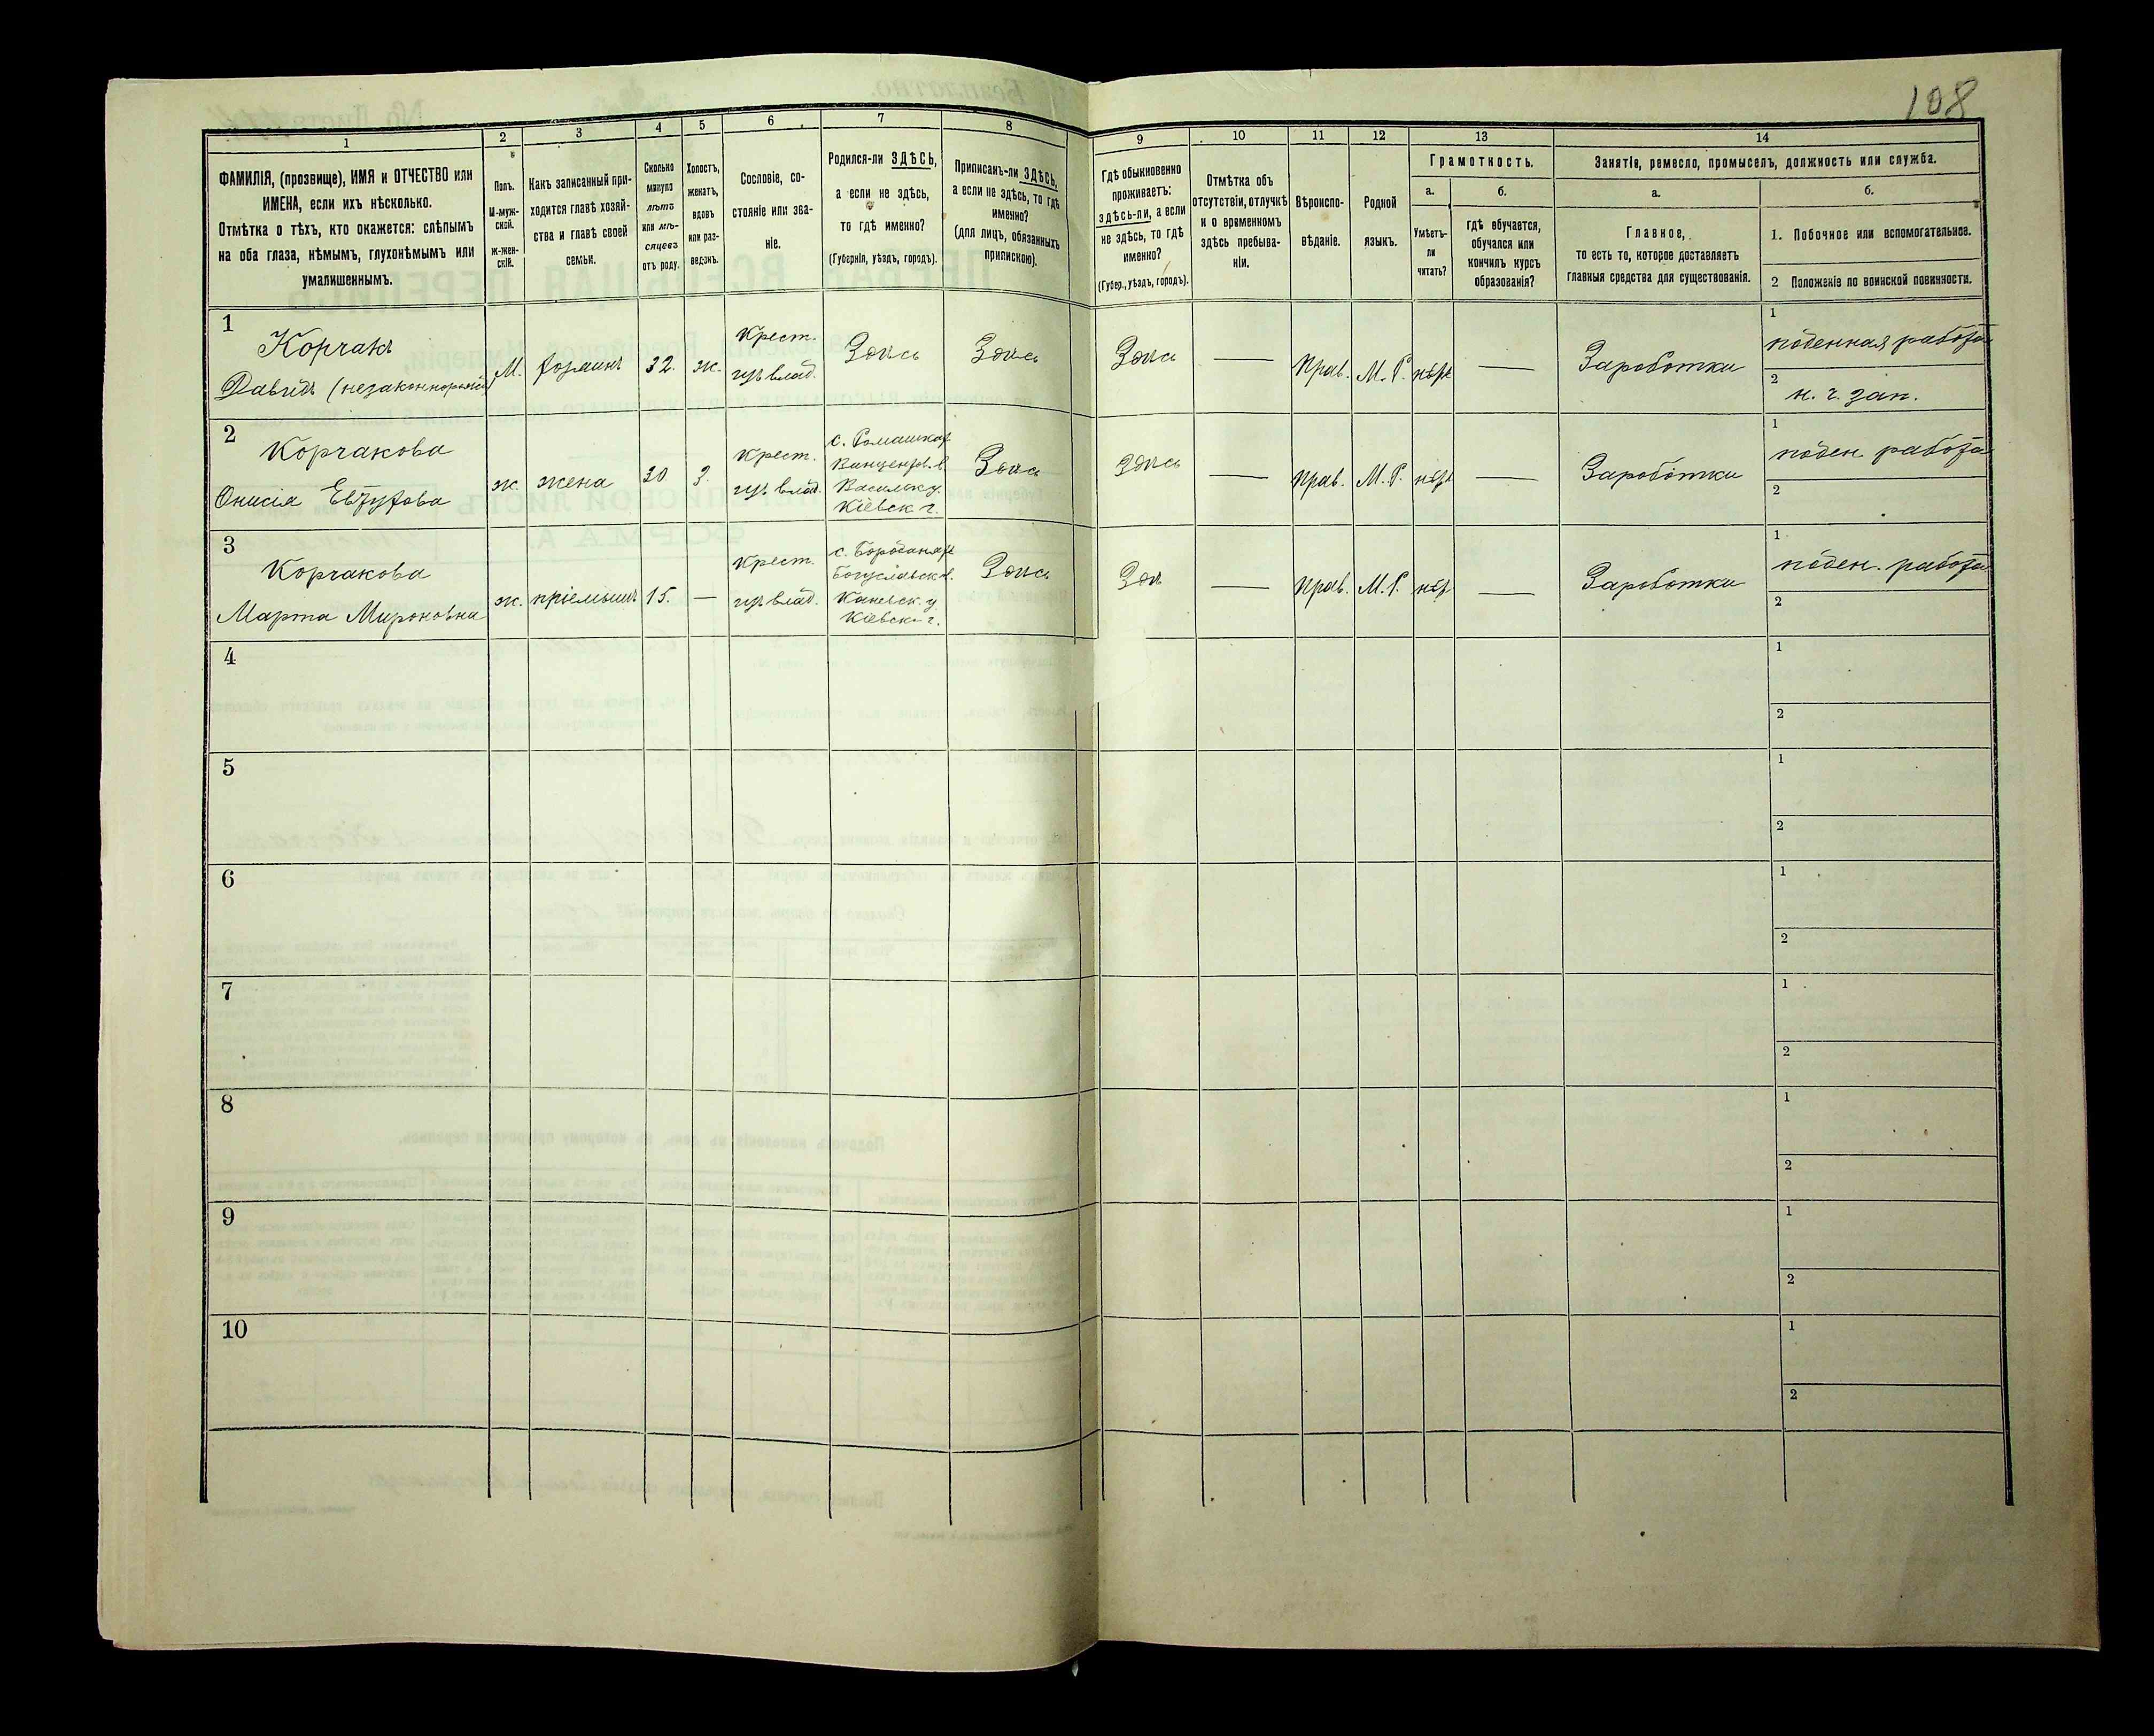 108
1
2
3
4
5
6
7
8
9
10
11
12
13
14
ФАМИЛІЯ, (прозвище), ИМЯ и ОТЧЕСТВО или
ИМЕНА, если ихъ нѣсколько.
Отмѣтка о тѣхъ, кто окажется: слѣпымъ
на оба глаза, нѣмымъ, глухонѣмымъ или
умалишеннымъ.
Полъ.
М-муж-
ской.
Ж-жен-
скій.
Какъ записанный при-
ходится главѣ хозяй-
ства и главѣ своей
семьи.
Сколько
минуло
лѣтъ
или мѣ-
сяцевъ
отъ роду.
Холостъ,
женатъ,
вдовъ
или раз-
веденъ.
Сословіе, со-
стояніе или зва-
ніе.
Родился-ли ЗДѢСЬ,
а если не здѣсь,
то гдѣ именно?
(Губернія, уѣздъ, городъ).
Приписанъ-ли ЗДѢСЬ,
а если не здѣсь, то гдѣ
именно?
(для лицъ, обязанныхъ
припискою).
Гдѣ обыкновенно
проживаетъ:
здѣсь-ли, а если
не здѣсь, то гдѣ
именно?
(Губер., уѣздъ, городъ).
Отмѣтка объ
отсутствіи, отлучкѣ
и о временномъ
здѣсь пребыва-
ніи.
Вѣроиспо-
вѣданіе.
Родной
языкъ.
Грамотность.
а.
Умѣетъ-
ли
читать?
б.
гдѣ обучается,
обучался или
кончилъ курсъ
образованія?
Занятіе, ремесло, промыселъ, должность или служба.
а.
Главное,
то есть то, которое доставляетъ
главныя средства для существованія.
б.
1. Побочное или вспомогательное.
2 Положеніе по воинской повинности.
1
Корчакъ
Давидъ (незаконнорожд.)
М.
хозяинъ
32.
ж.
Крест.
изъ влад.
Здѣсь
Здѣсь
Здѣсь
—
Прав.
М. Р.
нѣтъ
—
Заработки
1
поденная работа
2
н. ч. зап.
2
Корчакова
Онисія Евтухова
ж.
жена
30
з.
Крест.
изъ влад.
с. Ромашкахъ
Васильк. у.
Кіевск. г.
Здѣсь
Здѣсь
—
Прав.
М. Р.
нѣтъ
—
Заработки
1
поден. работа
2
3
Корчакова
Марта Мироновна
ж.
пріемышъ
15.
—
Крест.
изъ влад.
с. Бородахъ
Богуславск. в.
Каневск. у.
Кіевск. г.
Здѣсь
Здѣсь
—
Прав.
М. Р.
нѣтъ
—
Заработки
1
поден. работа
2
4
1
2
5
1
2
6
1
2
7
1
2
8
1
2
9
1
2
10
1
2